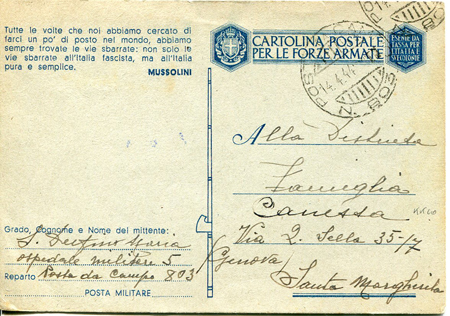 Tutte le volte che noi abbiamo cercato di
farci un po' di posto nel mondo, abbiamo
sempre trovate le vie sbarrate: non solo le
vie sbarrate all'Italia fascista, ma all'Italia
pura e semplice.
MUSSOLINI
CARTOLINA POSTALE
PER LE FORZE ARMATE
ESENTE DA
TASSA PER
L'ITALIA E
SUE COLONIE
Alla Distinta
Famiglia
Canessa
Via Q. Sella 35-17
(Genova)
Santa Margherita
Grado, Cognome e Nome del mittente:
S. Maria
ospedale militare 5
Reparto Posta da Campo 803
POSTA MILITARE